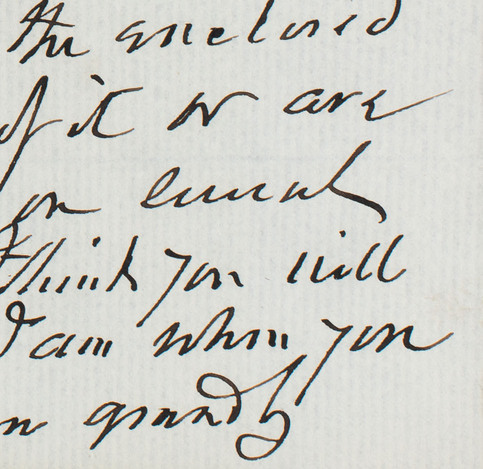 the enclosed
of it or are
on
think you will
I am when you
grandly